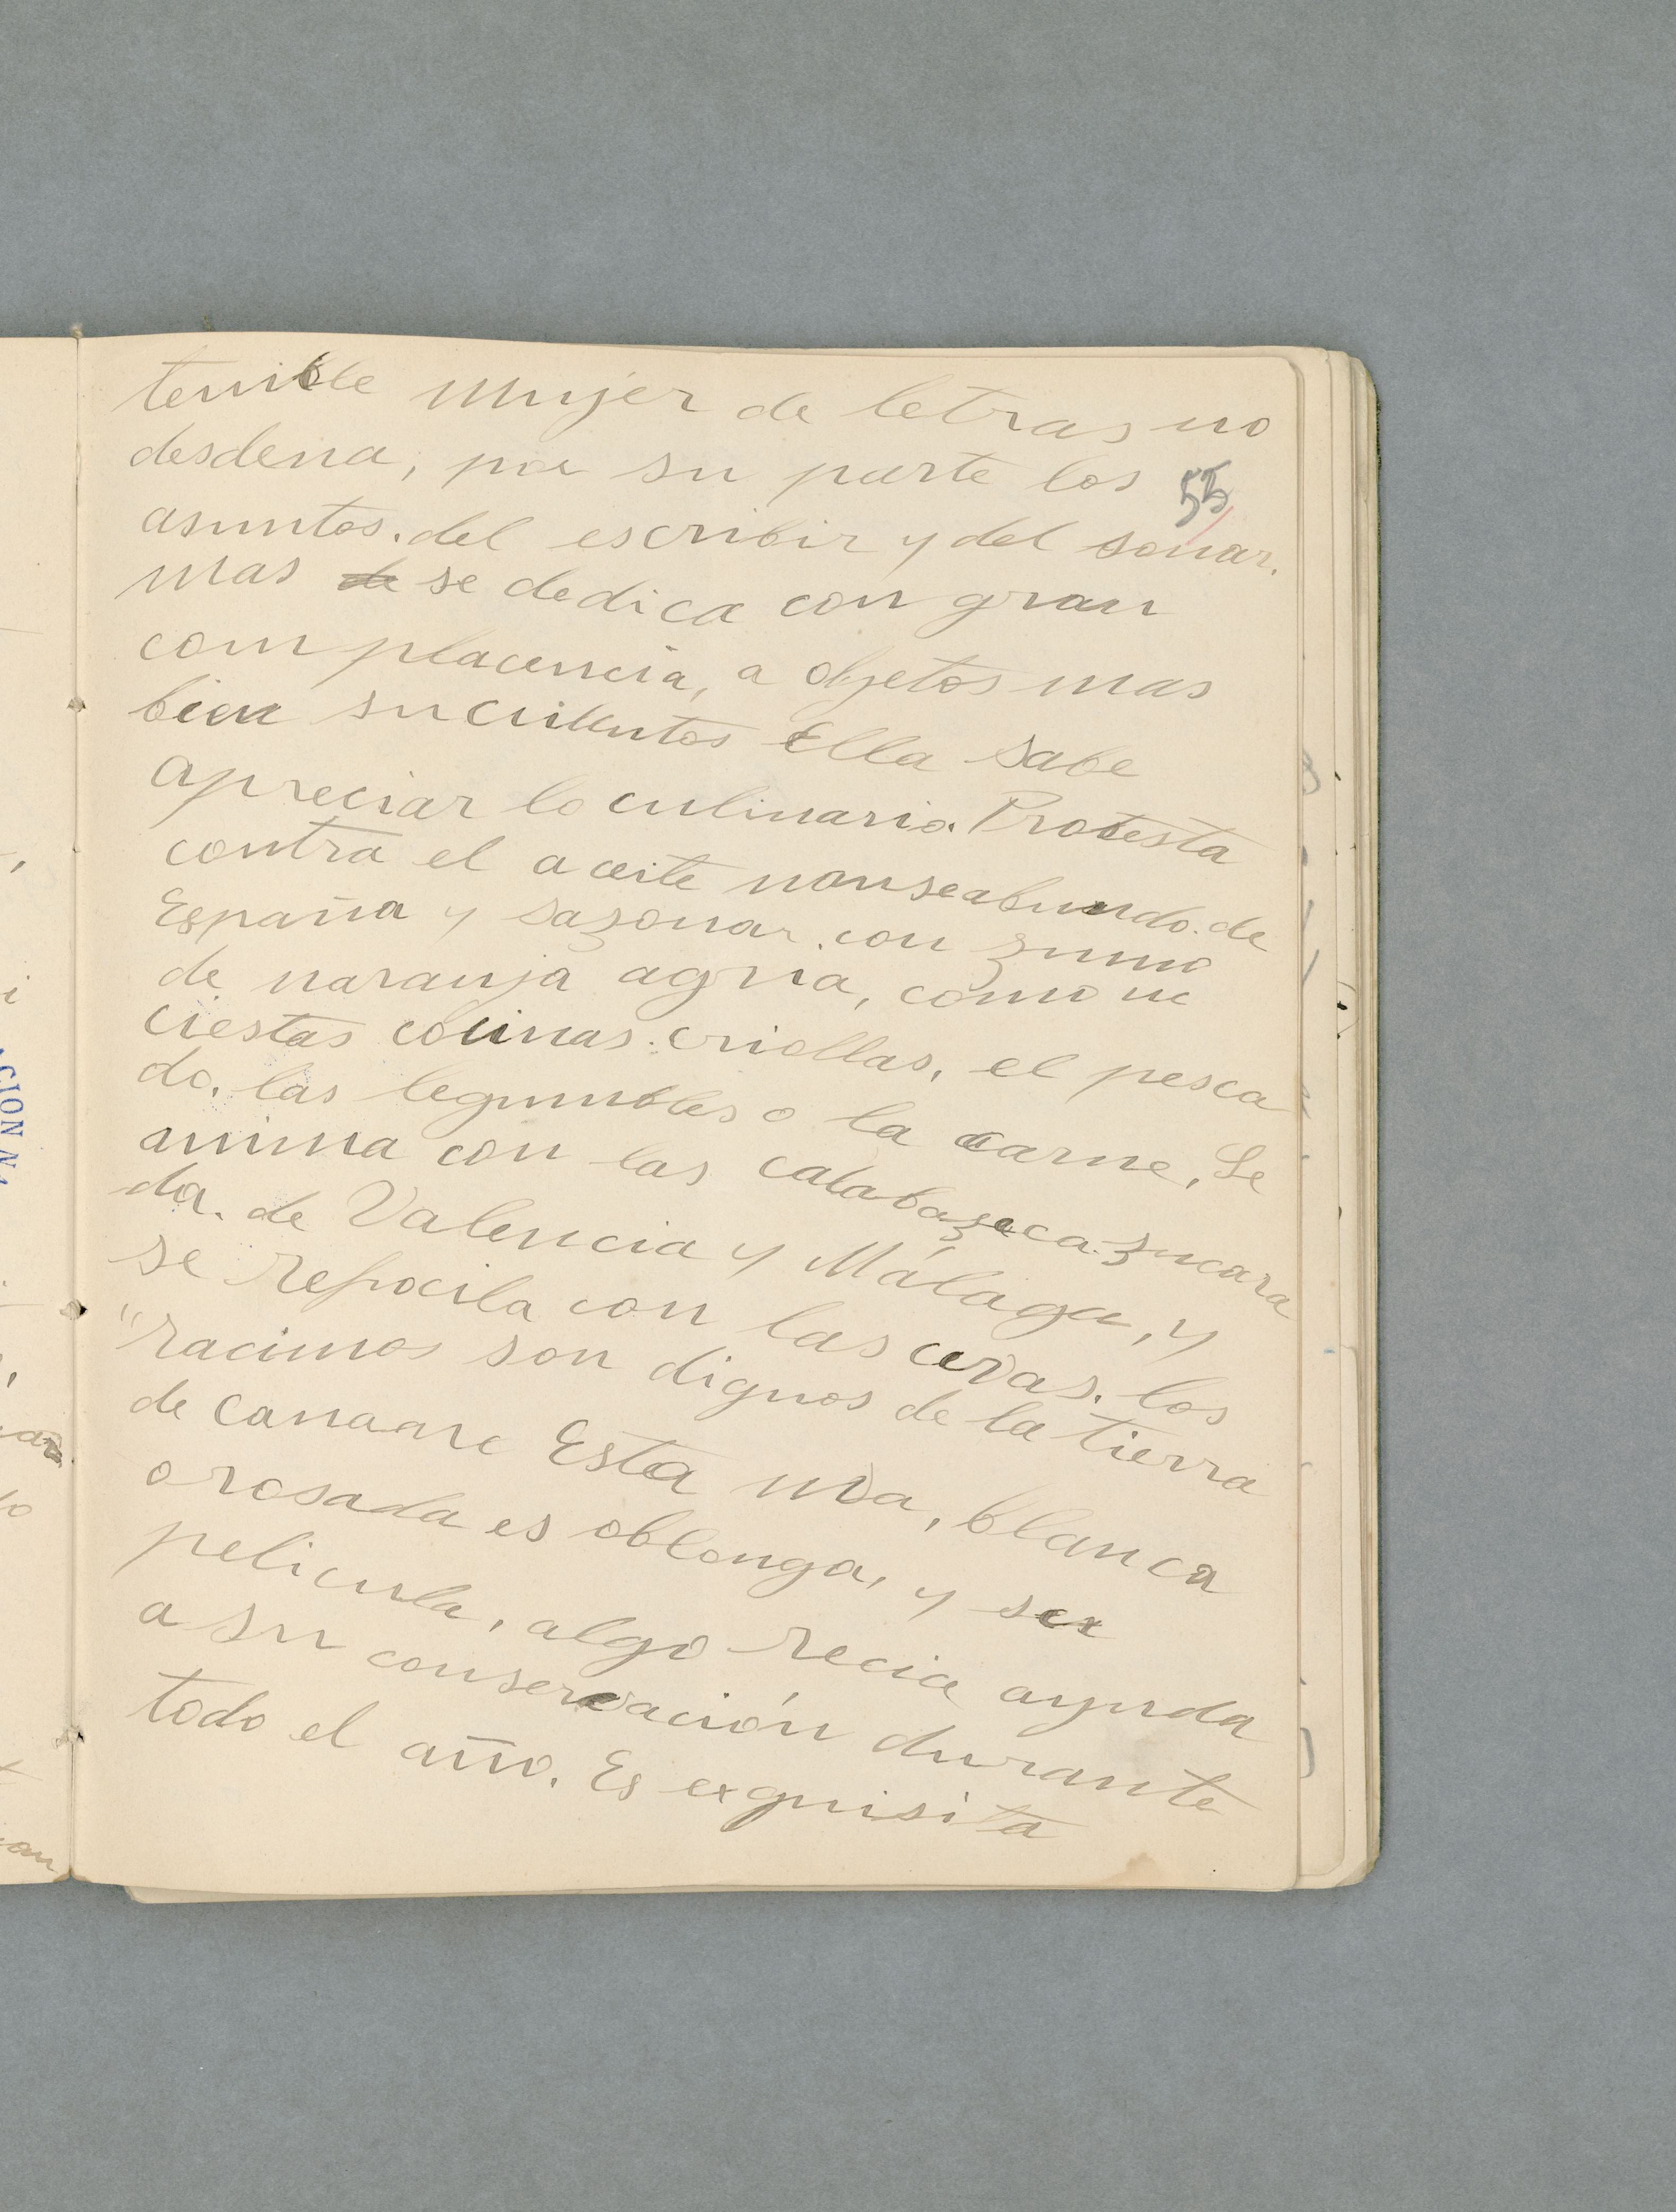 terrible mujer de letras no
desdena, por su parte los
55
asuntos. del escribir y del sonar.
mas de se dedica con gran
complacencia, a objetos mas
bien suculentos Ella sabe
apreciar lo culinario. Protesta
contra el aceite nauseabundo. de
España y sazonar. con zumo
de naranja agria, como
ciertas cocinas. criollas, el pesca
do. las legumbres o la carne, Se
anima con las calabazaca. zucara
da. de Valencia y Málaga, y
se refocila con las uvas. los
"racimos son dignos de la tierra
de Canaan Esta uva, blanca
o rosada es oblonga, y su
pelicula, algo recia ayuda
a su conservación durante
todo el año. Es exquisita
CION N